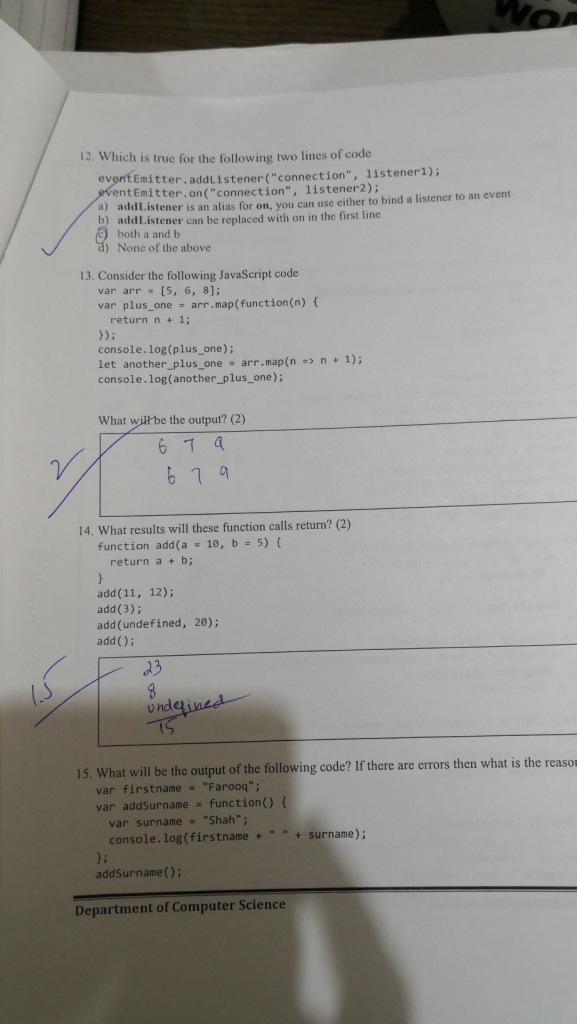 WOR
12. Which is true for the following two lines of code
eventEmitter.addListener("connection", listener1);
eventEmitter.on("connection", listener2);
a) addListener is an alias for on, you can use either to bind a listener to an event
b) addListener can be replaced with on in the first line
c) both a and b
d) None of the above
13. Consider the following JavaScript code
var arr = [5, 6, 8];
var plus_one = arr.map(function(n) {
return n + 1;
});
console.log(plus_one);
let another_plus_one = arr.map(n => n + 1);
console.log(another_plus_one);
What will be the output? (2)
6 7 9
6 7 9
2
14. What results will these function calls return? (2)
function add(a = 10, b = 5) {
return a + b;
}
add(11, 12);
add(3);
add(undefined, 20);
add();
23
8
undefined
15
1.5
15. What will be the output of the following code? If there are errors then what is the reason
var firstname = "Farooq";
var addSurname = function() {
var surname = "Shah";
console.log(firstname + " " + surname);
};
addSurname();
Department of Computer Science